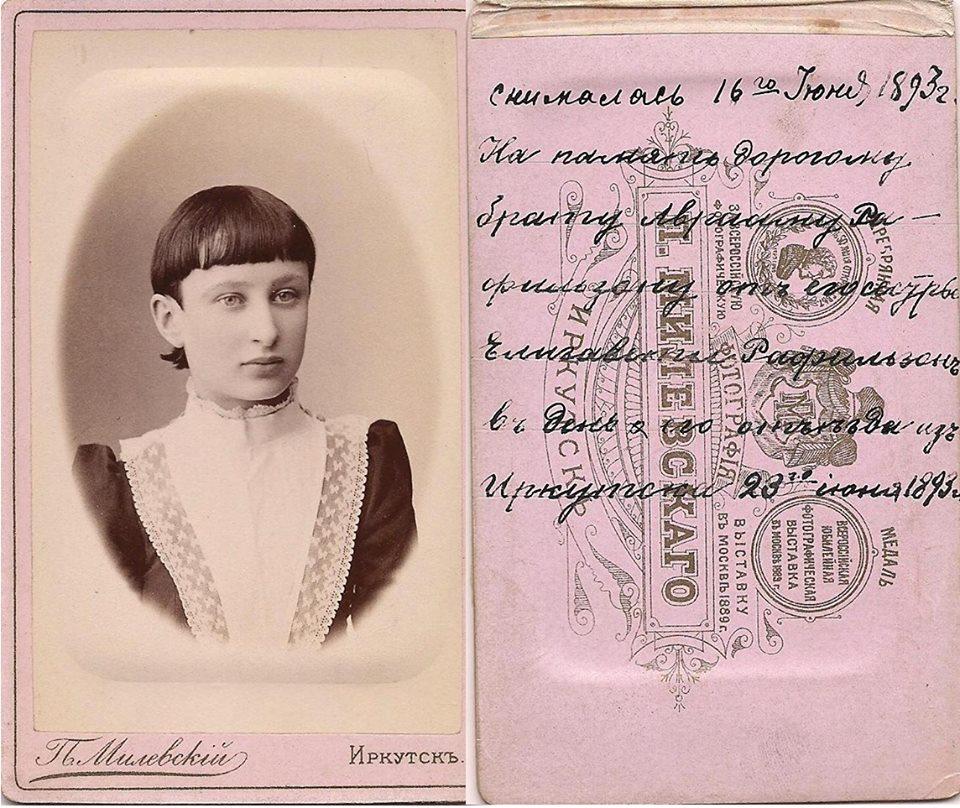 П. Милевскій
Иркутскъ.
снималась 16го Іюня 1893г.
На память дорогому
брату Аврааму Ра-
фильзону отъ его сестры
Елизаветы Рафильзонъ
въ день его отъѣзда изъ
Иркутска 23го июня 1893г.
ФОТОГРАФІЯ
П. МИЛЕВСКАГО
ИРКУТСКЪ
СЕРЕБРЯНАЯ
МЕДАЛЬ
ЗА ВСЕРОССІЙСКУЮ
ФОТОГРАФИЧЕСКУЮ
ВЫСТАВКУ
ВЪ МОСКВѢ 1889 г.
М
ВСЕРОССІЙСКАЯ
ЮБИЛЕЙНАЯ
ФОТОГРАФИЧЕСКАЯ
ВЫСТАВКА
ВЪ МОСКВѢ 1889 г.